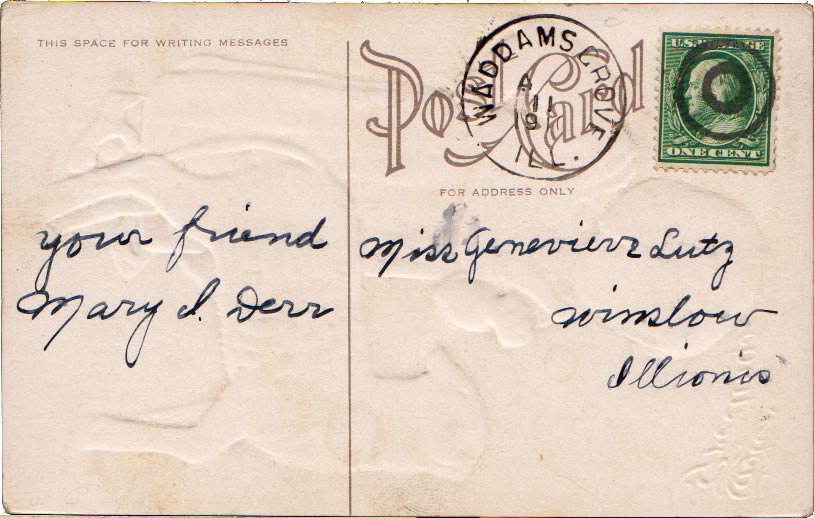 THIS SPACE FOR WRITING MESSAGES
Post Card
WADDAMS GROVE
A
11
19
ILL.
U.S. POSTAGE
ONE CENT
FOR ADDRESS ONLY
your friend
Mary I. Derr
Miss Genevieve Lutz
Winslow
Illionis